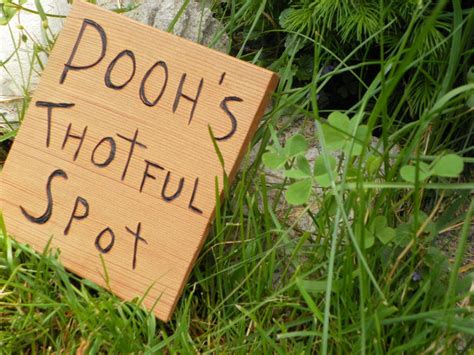 Pooh's
Thotful
Spot